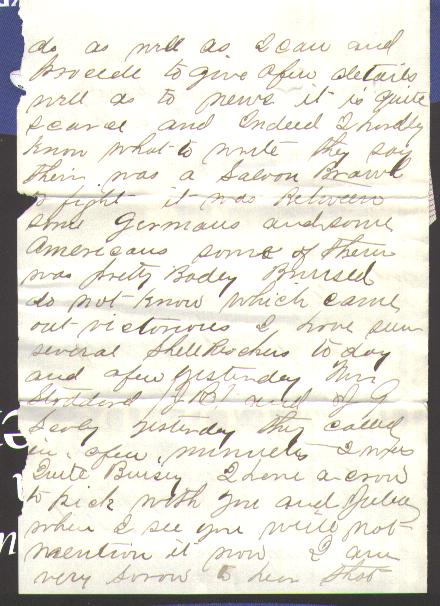 do as well as I can and
procede to give a few details
well as to news it is quite
scarce and Indeed I hardly
know what to write they say
their was a Saloon Brawl
fight it was Between
some Germans and some
Americans some of them
was pretty Badey Bruised
do not know which came
out victorious I have seen
several Shell Rockers to day
and a few yesterday
Stoddard J B and J G
yesterday they called
in a few minuets I was
Quite Buisey I have a crow
to pick with you and
when I see you will not
mention it now I am
very sorow to hear that